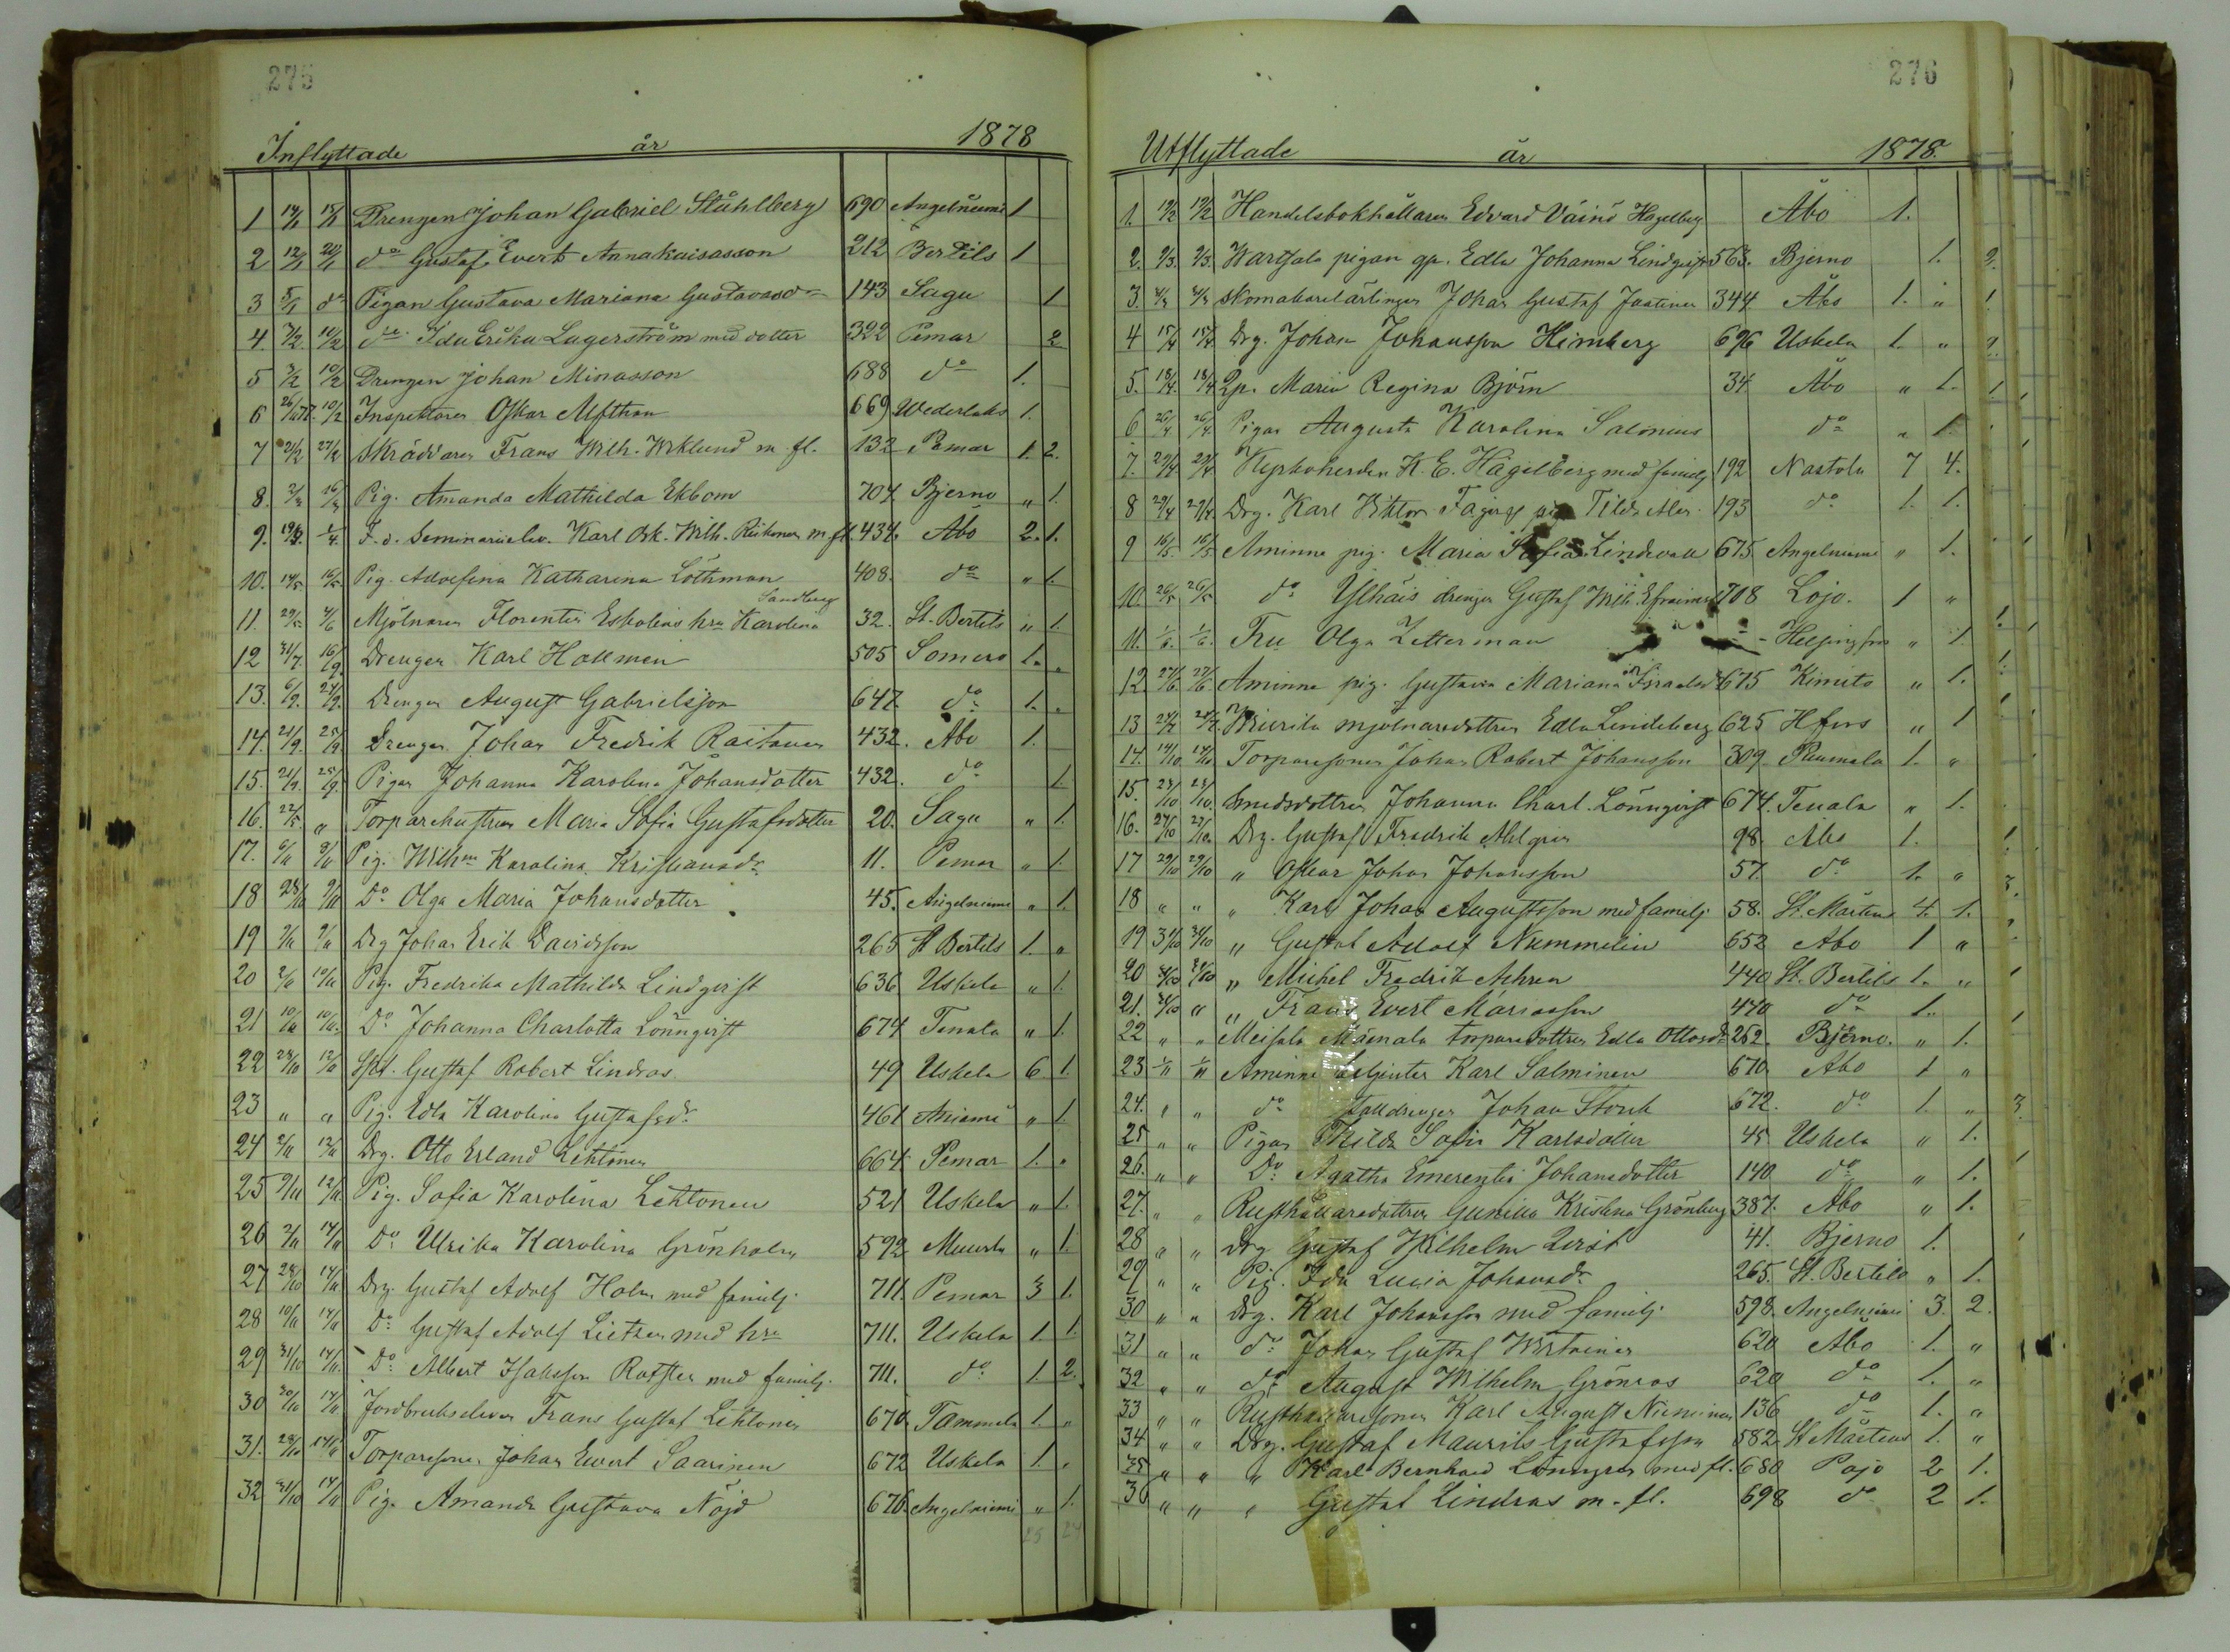 275
Inflyttade år 1878
1 14/1 15/1 Drengen Johan Gabriel Ståhlberg 690 Angelniemi 1
2 12/1 20/1 do Gustaf Evert Annakaisasson 212 Bertils 1
3 5/1 do Pigan Gustava Mariana Gustavasdr 143 Sagu 1
4. 7/2. 10/2 do Ida Erika Lagerström med dotter 322 Pemar 2
5 3/2 10/2 Drengen Johan Minasson 688 do 1.
6 10/2 Inspektoren Oskar Alfthan 669 Wederlaks 1.
7 21/2 27/2 Skräddaren Frans Wilh. Wiklund m. fl. 132 Pemar 1. 2.
8. Pig. Amanda Mathilda Ekbom 704 Bjerno „ 1.
9. 1/4. F. d. Seminarielev. Karl Osk. Wilh. m. fl 434. Åbo 2. 1.
10. 14/5 16/5 Pig. Adolfina Katharina Löthman 408. do „ 1.
Sandberg
11. 29/5 4/6 Mjölnaren Florentin Eskolins hru Karolina 32. St. Bertils „ 1.
12 31/7. 16/9. Drengen Karl Hallmen 505 Somero 1. „
13. 6/9. 24/9. Drengen August Gabrielsson 647 do 1. „
14. 21/9. 25/9 Drengen Johan Fredrik Raitanen 432. Åbo 1.
15. 21/9. 25/9. Pigan Johanna Karolina Johansdotter 432. do 1
16. 22/5 „ Torparehustrun Maria Sofia Gustafsdotter 20. Sagu „ 1.
17. 6/11 8/11 Pig. Wilhna Karolina Kristiansdr 11. Pemar „ 1.
18 28/10 9/11 Do Olga Maria Johansdotter 45. Angelniemi „ 1.
19 9/11 Drg Johan Erik Davidsson 265 St Bertils 1. „
20 10/11 Pig. Fredrika Mathilda Lindqvist 636 Uskela „ 1.
21 10/11 10/11. Do Johanna Charlotta Lönnqvist 674 Tenala „ 1.
22 28/10 12/11 Gustaf Robert Lindros 49 Uskela 6 1.
23 „ „ Pig. Edla Karolina Gustafsdr 461 „ 1.
24 12/11 Drg. Otto Erland Lehtinen 664 Pemar 1. „
25 9/11 12/11 Pig. Sofia Karolina Lehtonen 521 Uskela „ 1.
26 14/11 Do Ulrika Karolina Grönholm 592 Muurla „ 1.
27 28/10 14/11 Drg. Gustaf Adolf Holm med familj. 711. Pemar 3 1.
28 10/11 14/11 Do Gustaf Adolf Lietzen med hru 711. Uskela 1. 1.
29 31/10 14/11 Do Albert Isaksson med familj. 711. do 1 2.
30 14/11 Jordbrukseleven Frans Gustaf Lehtonen 670 Tammela 1. „
31. 28/10 14/11 Torparesonen Johan Evert Saarinen 672 Uskela 1. „
32 31/10 14/11 Pig. Amanda Gustava Nöjd 676. Angelniemi „ 1.
25 24
276
Utflyttade år 1878.
1. 19/2 19/2 Handelsbokhållaren Edvard Väinö Hagelberg Åbo 1.
2. 9/3. 9/3. Wartsala pigan qp. Edla Johanna Lindqvist 563. Bjerno 1.
3. Skomakarelärlingen Johan Gustaf Jaatinen 344 Åbo 1. „
4 15/4 15/4 Drg. Johan Johansson Heimberg 696 Uskela 1. „
5. 18/4. 18/4 Qp. Maria Regina Björn 34 Åbo „ 1.
6 26/4 26/4. Pigan Augusta Karolina Salonius do „ 1.
7. 29/4 29/4 Kyrkoherden K. E. Hägelberg med familj 192 Nastola 7 4.
8 29/4 29/4. Drg. Karl Viktor 193 do 1. 1.
9 16/5. 16/5 Aminne pig. Maria Sofia Lindevall 675 Angelniemi „ 1.
10. 26/5 26/5 do Ylhäis drengen Gustaf Wilh. Efraimss 708 Lojo. 1 „
11. 1/6. 1/6. Fru Olga Zetterman Helsingfors „ 1.
12 27/6 27/6 Aminne pig. Gustava Mariana Israelsd 675 Kimito „ 1.
13 mjölnaredottren Edla Lindeberg 625 Hfors „ 1
14. 14/10. 14/10 Torparesonen Johan Robert Johansson 309 1. „
15. 23/10 23/10. Smedsdottren Johanna Charl. Lönnqvist 674. Tenala „ 1.
16. 27/10 27/10. Drg. Gustaf Fredrik Ahlgren 98. Åbo 1.
17 29/10 29/10 „ Oskar Johan Johansson 57. do 1. „
18 „ „ „ Karl Johan Augustsson med familj. 58. St. Mårtens 4. 1.
19 31/10 31/10 „ Gustaf Adolf Nummelin 652 Åbo 1 „
20 31/10 31/10 „ Michel Fredrik Achren 440 St. Bertils 1. „
21. 31/10 „ „ Frans Evert Mariasson 470 do 1.
22 „ „ Meisala Mäenala torparedottren Edla Ottosdr 252. Bjerno. „ 1.
23 1/11 1/11 Aminne betjenten Karl Salminen 670 Åbo 1 „
24. „ „ do stalldrengen Johan Storck 672. do 1. „
25 „ „ Pigan Thilda Sofia Karlsdotter 45 Uskela „ 1.
26. „ „ Do Agatha Emerentia Johansdotter 140 do „ 1.
27. „ „ Rusthållaredottren Gunilla Kristina Grönberg 387. Åbo „ 1.
28 „ „ Drg Gustaf Wilhelm Qvist 41. Bjerno 1.
29 „ „ Pig. Ida Lucia Johansdr 265. St. Bertils „ 1.
30 „ „ Drg. Karl Johansson med familj. 598. Angelniemi 3. 2.
31 „ „ do Johan Gustaf Wirtainen 620 Åbo 1. „
32 „ „ do August Wilhelm Grönroos 620 do 1. „
33 „ „ Rusthållaresonen Karl August Nieminen 136 do 1. „
34 „ „ Drg. Gustaf Maurits Gustafsson 582 St Mårtens 1. „
35 „ „ „ Karl Bernhard Lönngren med fl. 680 Pojo 2 1.
36 „ „ „ Gustaf Lindros m. fl. 698 do 2 1.